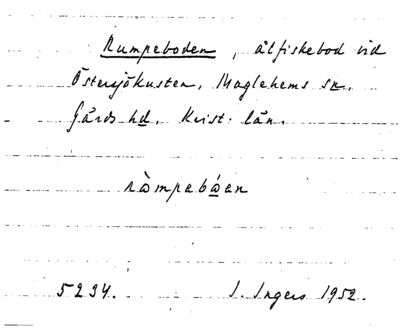 Rumpeboden, ålfiskebod vid
Östersjökusten, Maglehems sn.
Gärds hd. Krist. län.
ràmpebáen
5234. I. Ingers 1952.